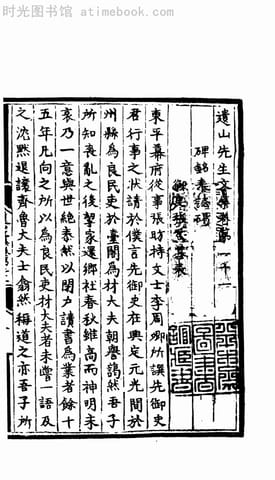 时光图书馆 atimebook.com
遺山先生文集卷第二十一
碑銘表誌碣
御史張君墓表
東平幕府從事張昉持文士李周卿所譔先御史
君行事之狀請於僕言先御史在興定元光間於
州縣為良民吏於臺閣為材大夫朝譽藹然吾子
所知喪亂之後挈家還鄉社春秋雖高而神明未
衰乃一意與世絕泰然以閉戶讀書為業者餘十
五年凡向之所以為良民吏材大夫者未嘗一語及
之沈默退讓齊魯大夫士翕然稱道之亦吾子所